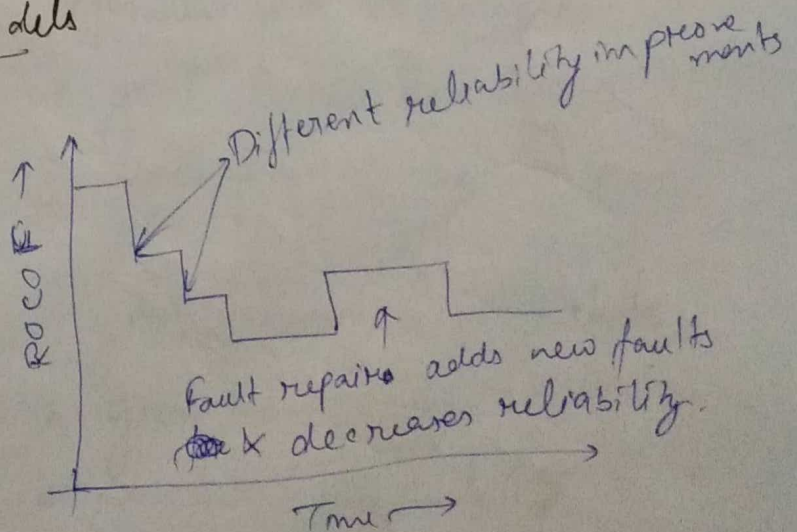 dels
Different reliability improve
ments
ROCOF →
Fault repairs adds new faults
& decreases reliability.
Time →